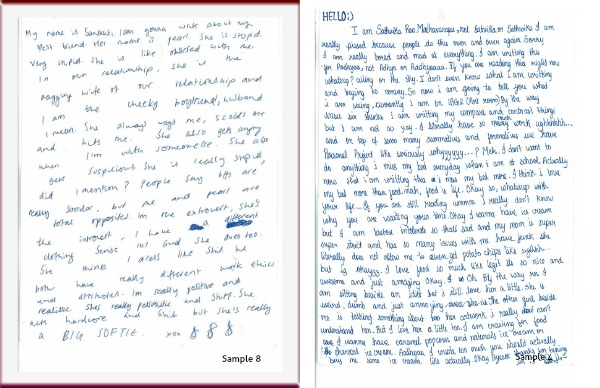 My name is Sanskuti, I am gonna write about my
best friend. Her name is pearl. She is stupid.
Very stupid. She is like obsessed with me.
In our relationship, she is the
nagging wife of our relationship and
I am the cheeky boyfriend, husband
I mean. She always nags me, scolds me
and hits me. She also gets angry
when I'm with someone else. She also
gets suspicious. She is really stupid,
did I mention? People say bffs are
really similar, but me and pearl are
total opposites. Im the extrovert, she's
the introvert, I have a different
clothing sense lol and she does too.
She thinks I dress like shit. We
both have really different work ethics
and attitudes. Im really positive and
realistic. She's really pessimistic and stuff. She
acts hardcore and shit but she's really
a BIG SOFTIE. xox
Sample 8
HELLO:)
I am Sathvika Rao Madhavarapu, not Sathvika or Sathvika I am
really pissed because people do this over and over again. Sorry
I am really bored and mad at everything. I am writing this
for Aadhyaa, not Adhya or Aadhyaaaa. If you are reading this right now
whatsup? ceiling or the sky. I don't even know what I am writing
and trying to convey. So now I am going to tell you what
I am doing, currently I am in (Art room) By the way
I am writing my compare and contrast thing,
but I am not so yay. I literally have so much work ughhhhh...
and on top of that summatives and formatives we have
Personal Project like seriously whyyyyyy....? Meh. I don't want to
do anything I miss my bed everyday when I am at school. Actually
now that I am writing this I miss my bed more. I think I love
my bed more than food. nah, food is life. Okay so, whatsup with
your life... If you are still reading umm I really don't know
why you are wasting your time. Okay I wanna have ice cream
but I am lactose intolerant so thats sad and my mom is super
super strict and has so many issues with me have junk she
literally does not allow me to even get potato chips like ughh...
but its okayy. I love food so much like legit its so nice and
awesome and just amazing okay. Oh By the way rn I
am sitting beside an idiot but I still love him a little. she is
weird, dumb and just annoying. The other guy beside
me is talking something about his artwork I really don't
understand him. But I love her a little too. I am craving for food
rn. I wanna have caramel popcorn and naturals ice cream or
the charcoal ice cream. Aadhyaa I wrote too much you should actually
buy me some ice cream like actually. Okay byeee thanks for
Sample 4